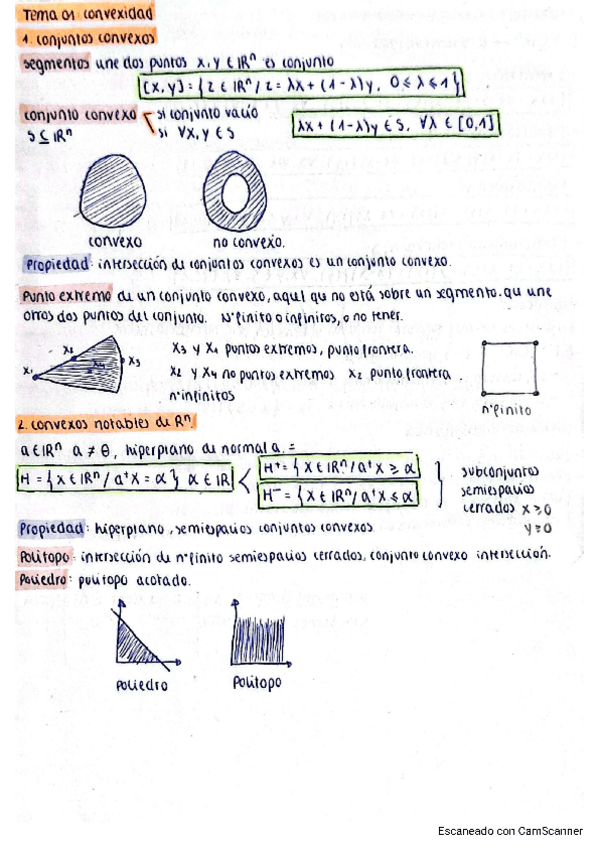 Tema 01 convexidad
1. conjuntos convexos
segmentos une dos puntos x, y ∈ ℝⁿ es conjunto
[x, y] = { z ∈ ℝⁿ / z = λx + (1-λ)y, 0 ≤ λ ≤ 1 }
conjunto convexo si conjunto vacío
S ⊆ ℝⁿ si ∀x, y ∈ S λx + (1-λ)y ∈ S, ∀λ ∈ [0,1]
convexo no convexo.
Propiedad: intersección de conjuntos convexos es un conjunto convexo.
Punto extremo de un conjunto convexo, aquel qu no está sobre un segmento qu une
otros dos puntos del conjunto. Nº finito o infinitos, o no tener.
x₁ x₂ x₄ x₃
x₃ y x₁ puntos extremos, punto frontera.
x₂ y x₄ no puntos extremos x₂ punto frontera
nº infinitos
nº finito
2. convexos notables de Rⁿ.
a ∈ ℝⁿ a ≠ θ, hiperplano de normal a =
H = { x ∈ ℝⁿ / aᵗx = α } α ∈ ℝ
H⁺ = { x ∈ ℝⁿ / aᵗx ≥ α }
H⁻ = { x ∈ ℝⁿ / aᵗx ≤ α }
subconjuntos
semiespacios
cerrados x ≥ 0
y ≥ 0
Propiedad: hiperplano, semiespacios conjuntos convexos
Politopo: intersección de nº finito semiespacios cerrados, conjunto convexo intersección.
Poliedro: politopo acotado.
Poliedro Politopo
Escaneado con CamScanner